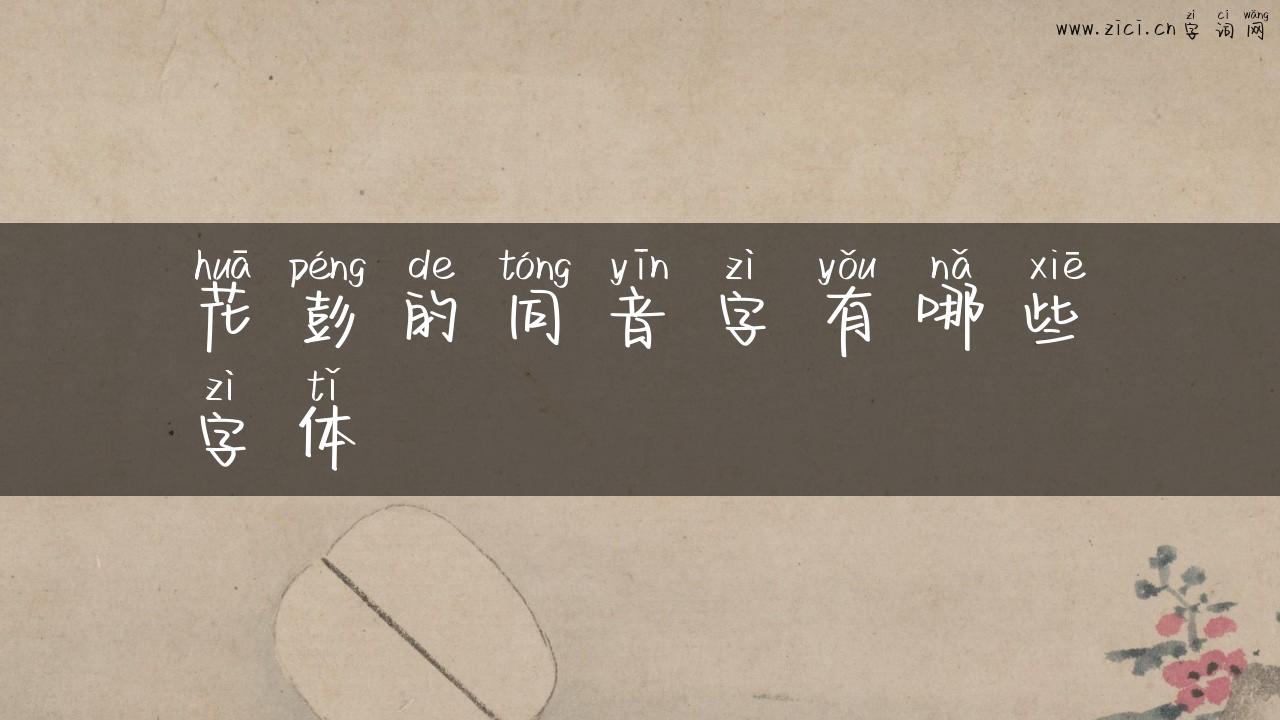 zì cí wǎng
www.zici.cn 字词网
huā péng de tóng yīn zì yǒu nǎ xiē
花彭的同音字有哪些
zì tǐ
字体